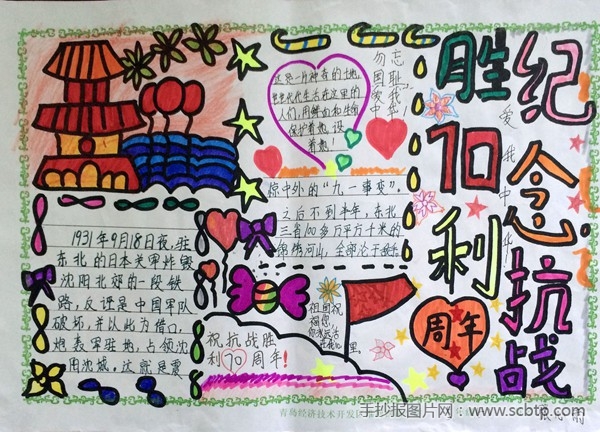 纪念抗战
胜70利
周年
爱我中华
勿忘
国耻
爱我
中华
这是一片神奇的土地,
世世代代生活在这里的
人们,用鲜血和生命
保护着她,设
着她!
1931年9月18日夜,驻
东北的日本关军炸毁
沈阳北郊的一段铁
路,反诬是中国军队
破坏,并以此为借口,
炮轰军驻地,占领沈
阳沈城,这就是震
惊中外的“九一事变”。
之后不到半年,东北
三省100多万平方千米的
锦绣河山,全部沦于敌手
祖国祝
福您,
你永远活
在我心
里。
祝抗战胜
利70周年!
青岛经济技术开发区
手抄报图片网:www.scbtp.com